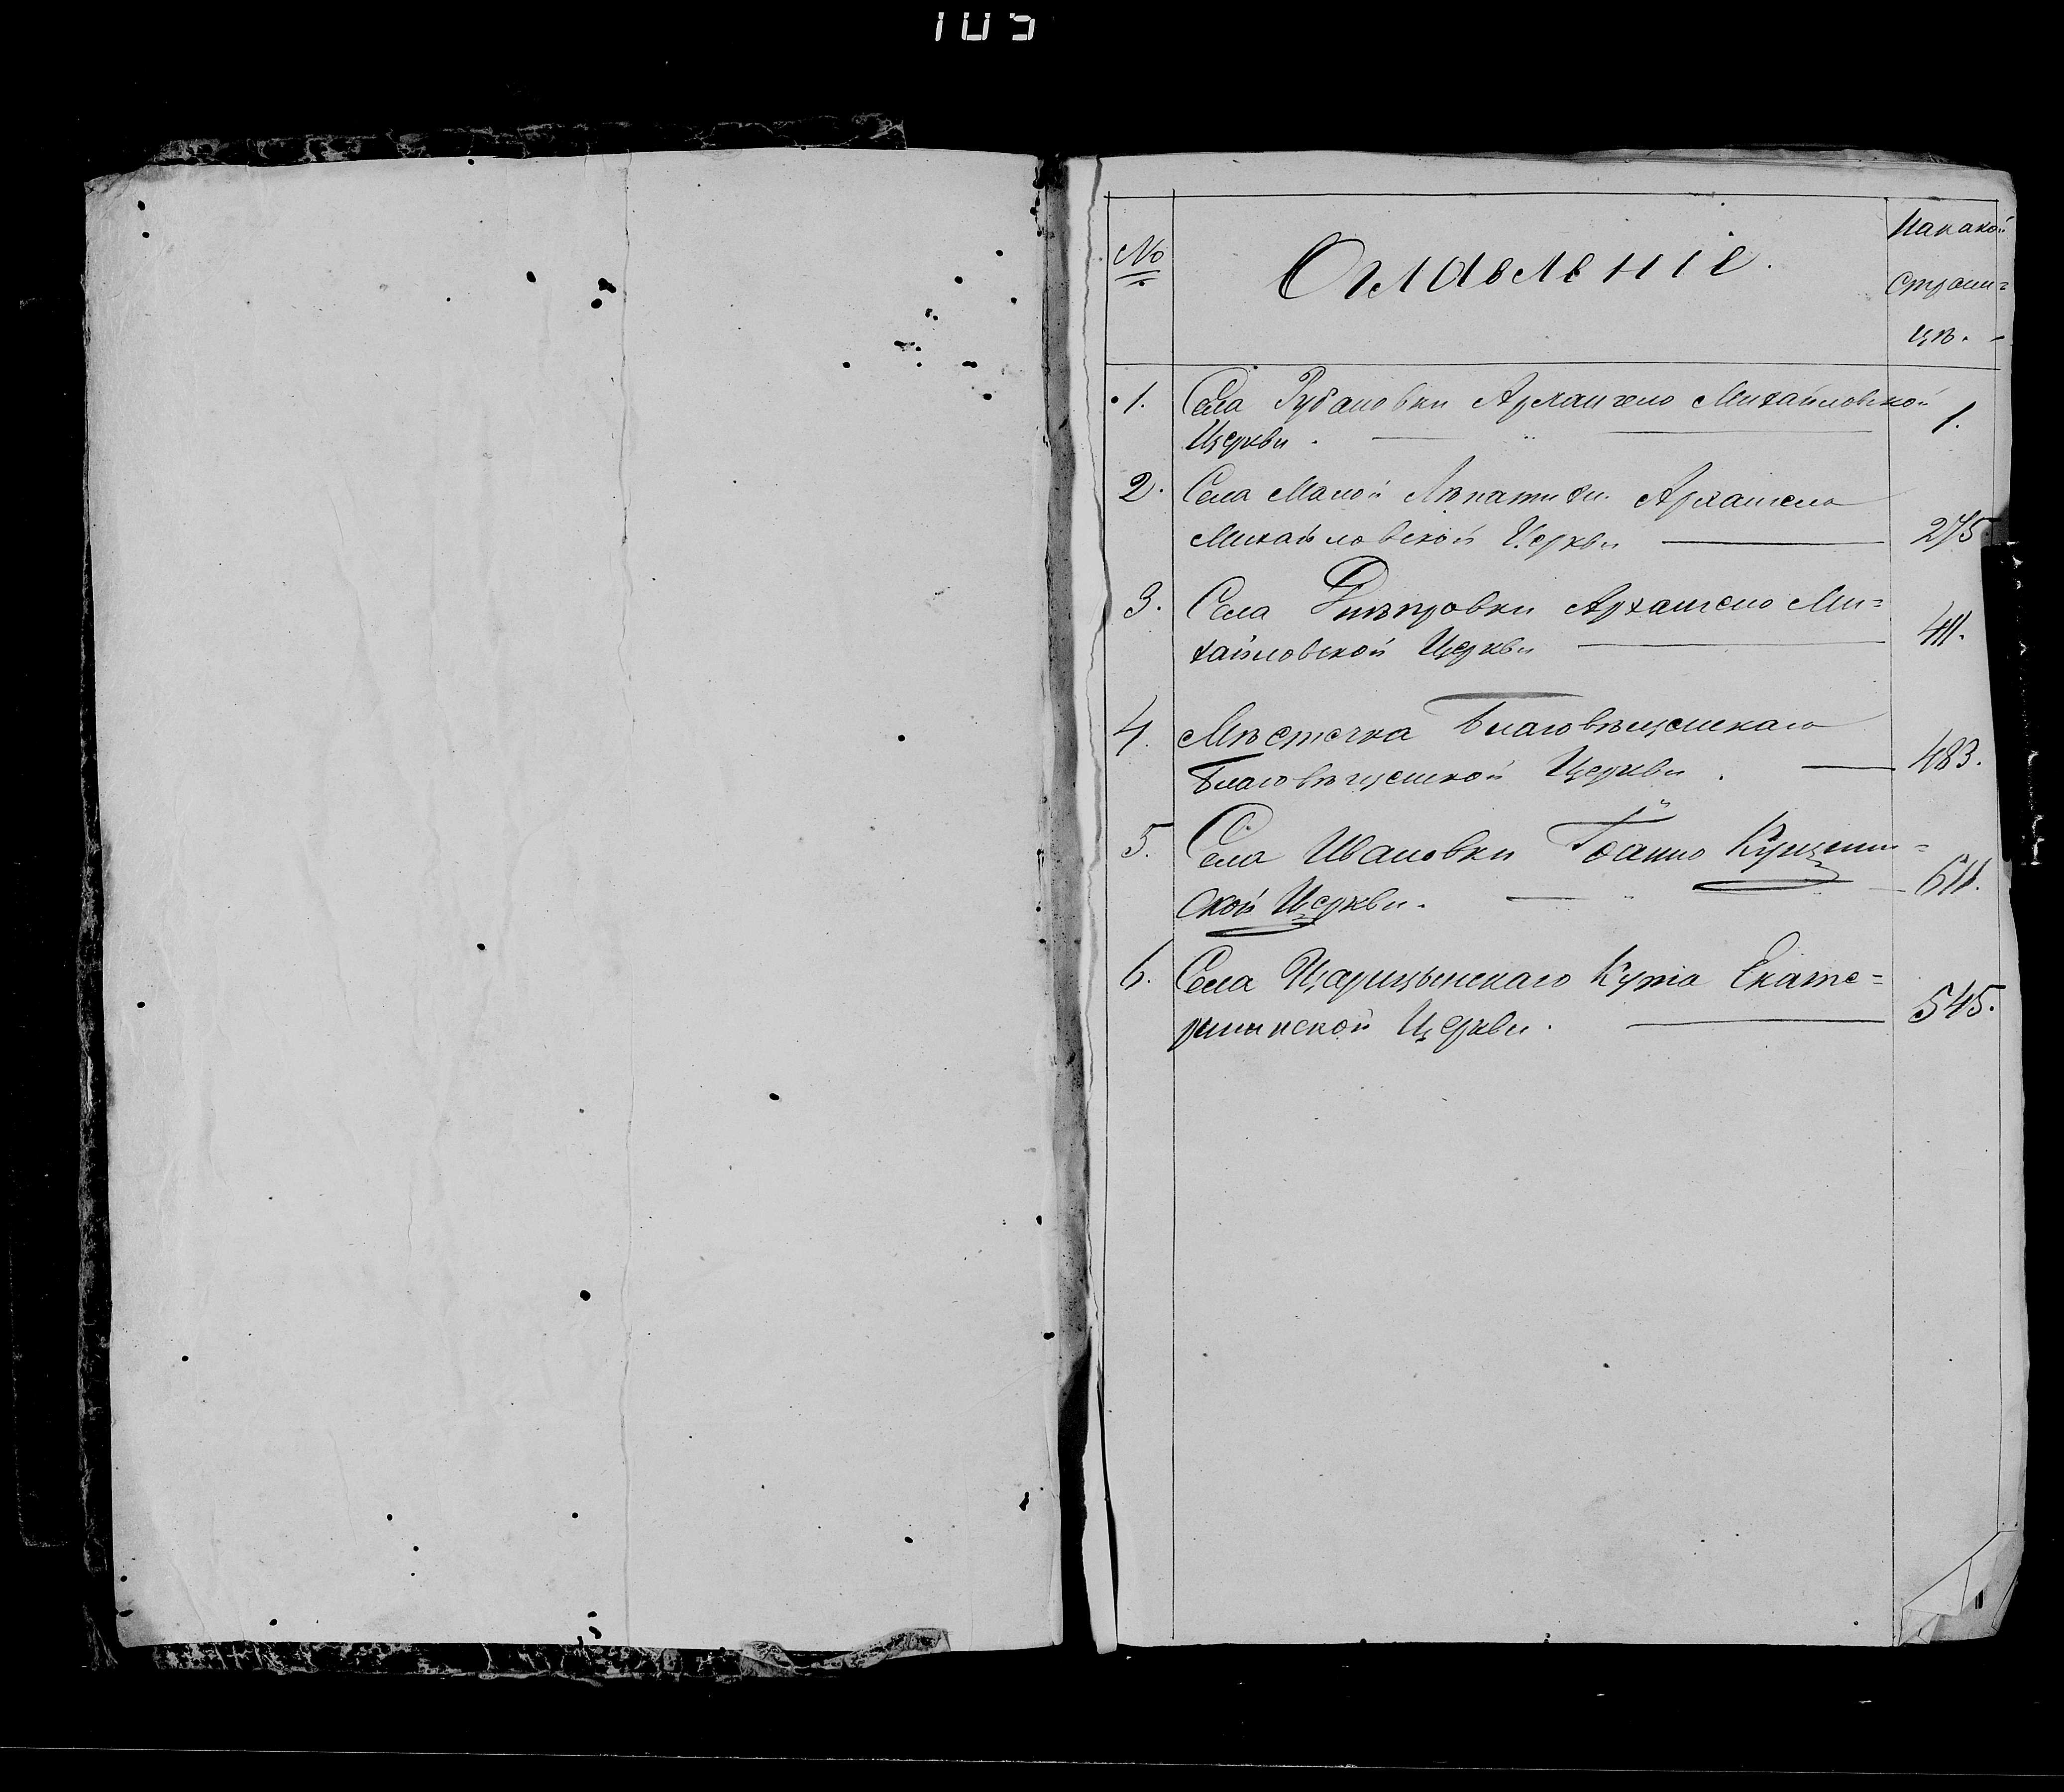 105
№
Оглавленіе.
На какой
страни=
цѣ.
1. Села Рубановки Архангело Михайловской
Церкви. 1.
2. Села Малой Лѣпатихи Архангело
Михайловской Церкви 275
3. Села Днѣпровки Архангело Ми=
хайловской Церкви 411.
4. Мѣстечка Благовѣщенскаго
Благовѣщенской Церкви. 483.
5. Села Ивановки Іоанно
ской Церкви. 611.
6. Села Царицынскаго Кута Екате=
рининской Церкви. 545.